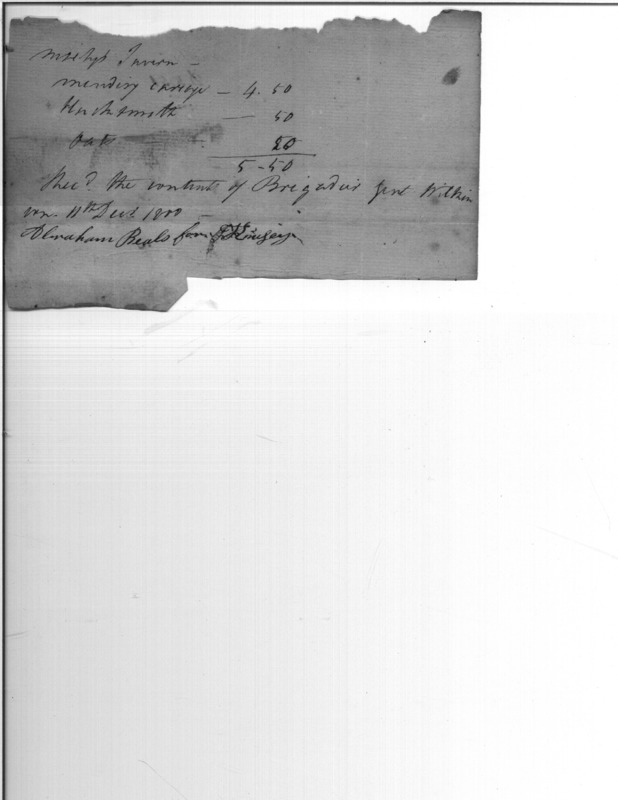 Tavern –
mending carriage – 4. 50
Blacksmith — 50
Oats - 50
5-50
Recd. the contents of Brigadier Genl Wilkin
son. 11th Decr 1800 –
Abraham Beals for